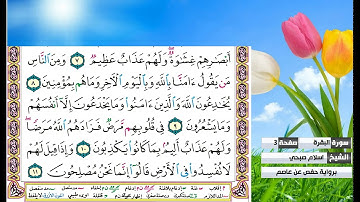 أَبْصَٰرِهِمْ غِشَٰوَةٌ وَلَهُمْ عَذَابٌ عَظِيمٌ ٧ وَمِنَ النَّاسِ
مَن يَقُولُ ءَامَنَّا بِاللَّهِ وَبِالْيَوْمِ الْآخِرِ وَمَا هُم بِمُؤْمِنِينَ ٨
يُخَٰدِعُونَ اللَّهَ وَالَّذِينَ ءَامَنُوا وَمَا يَخْدَعُونَ إِلَّا أَنفُسَهُمْ
وَمَا يَشْعُرُونَ ٩ فِي قُلُوبِهِم مَّرَضٌ فَزَادَهُمُ اللَّهُ مَرَضًا
وَلَهُمْ عَذَابٌ أَلِيمٌ بِمَا كَانُوا يَكْذِبُونَ ١٠ وَإِذَا قِيلَ لَهُمْ
لَا تُفْسِدُوا فِي الْأَرْضِ قَالُوا إِنَّمَا نَحْنُ مُصْلِحُونَ ١١
سورة البقرة صفحة 3
الشيخ اسلام صبحي
برواية حفص عن عاصم